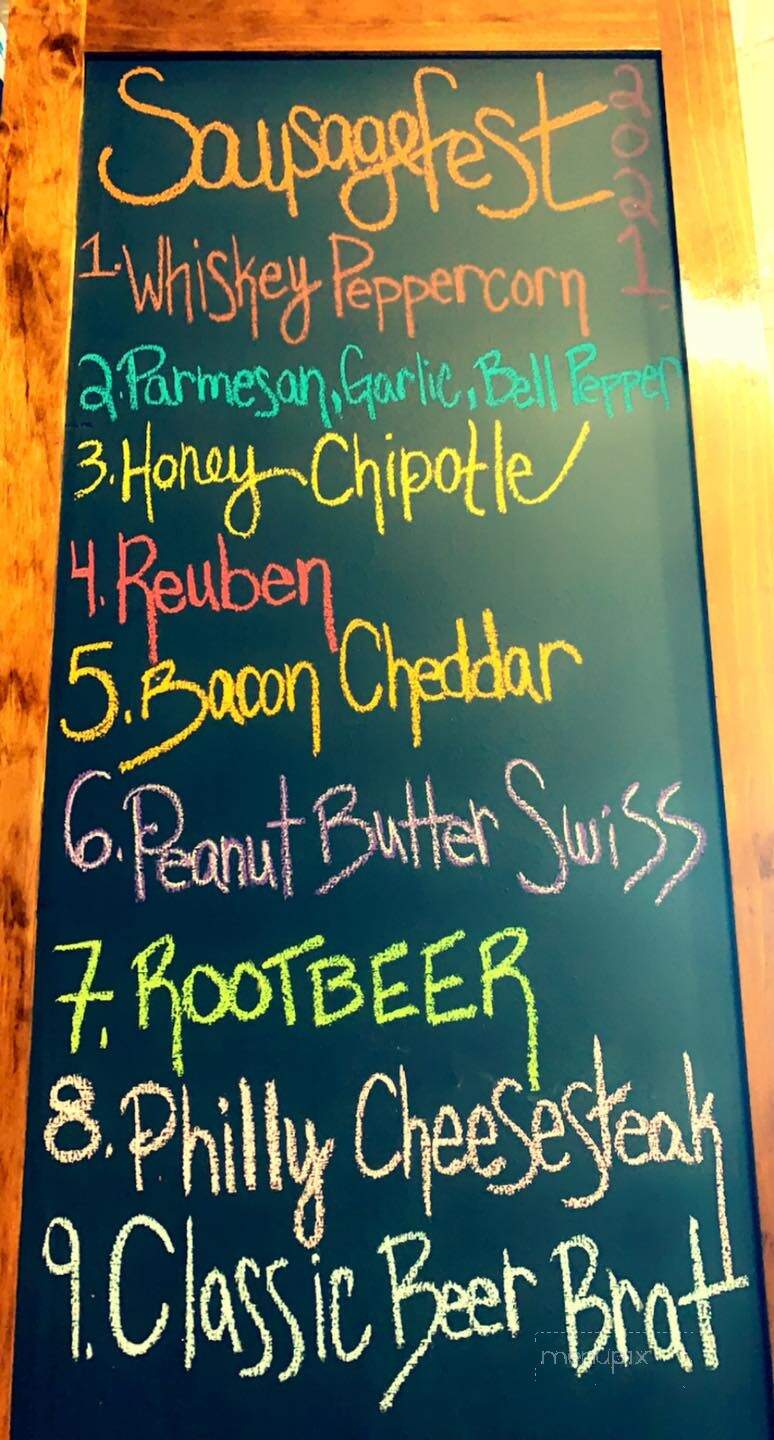 Sausagefest
2021
1. Whiskey Peppercorn
2. Parmesan, Garlic, Bell Pepper
3. Honey Chipotle
4. Reuben
5. Bacon Cheddar
6. Peanut Butter Swiss
7. ROOTBEER
8. Philly Cheesesteak
9. Classic Beer Brat
menupix